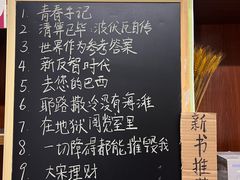 1. 青春手记
2. 清算已毕：波伏瓦自传
3. 世界作为参考答案
4. 新反智时代
5. 去您的巴西
6. 耶路撒冷没有海滩
7. 在地狱阅览室里
8. 一切障碍都能摧毁我
9. 大宋理财
新书推